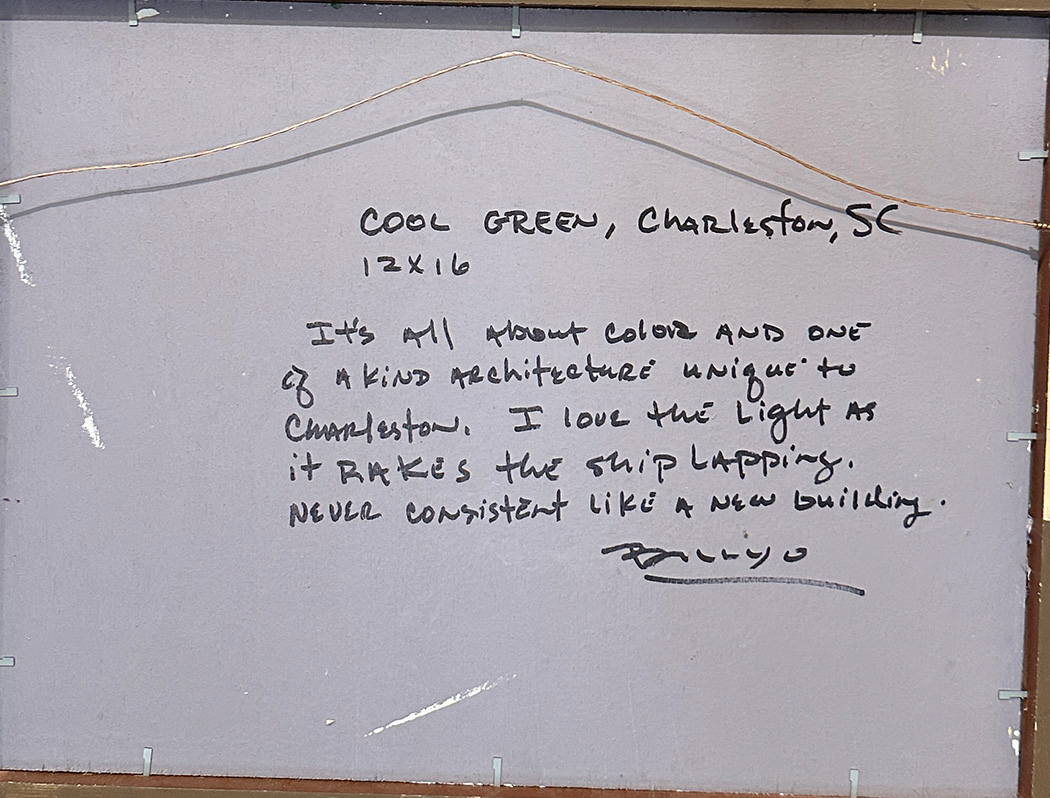 COOL GREEN, Charleston, SC
12x16
It's all about color and one
of a kind architecture unique to
Charleston. I love the light as
it rakes the ship lapping.
Never consistent like a new building.
Billyo